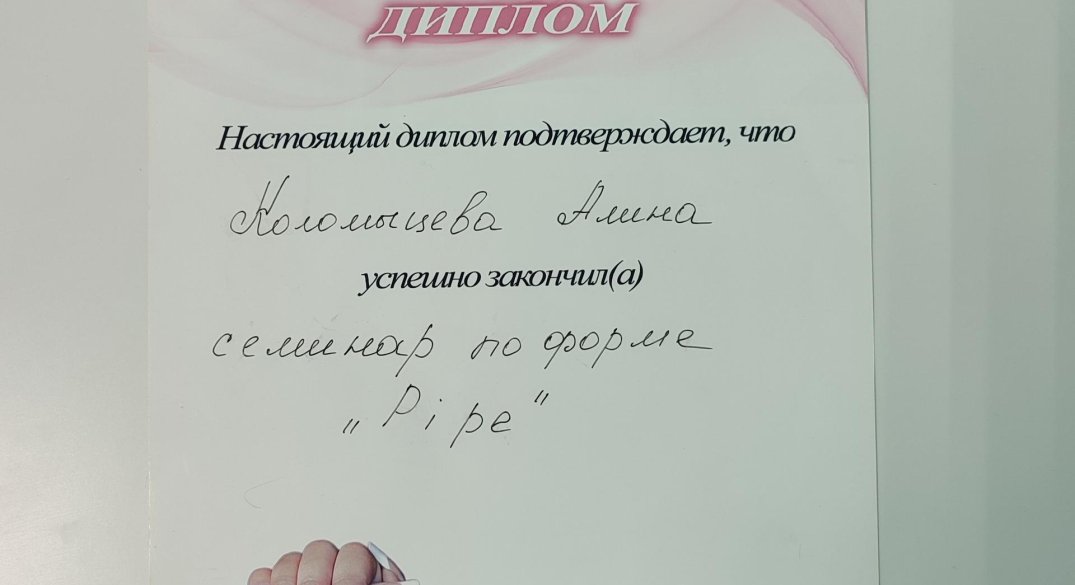 ДИПЛОМ
Настоящий диплом подтверждает, что
Коломыцева Алина
успешно закончил(а)
семинар по форме
„Pipe"